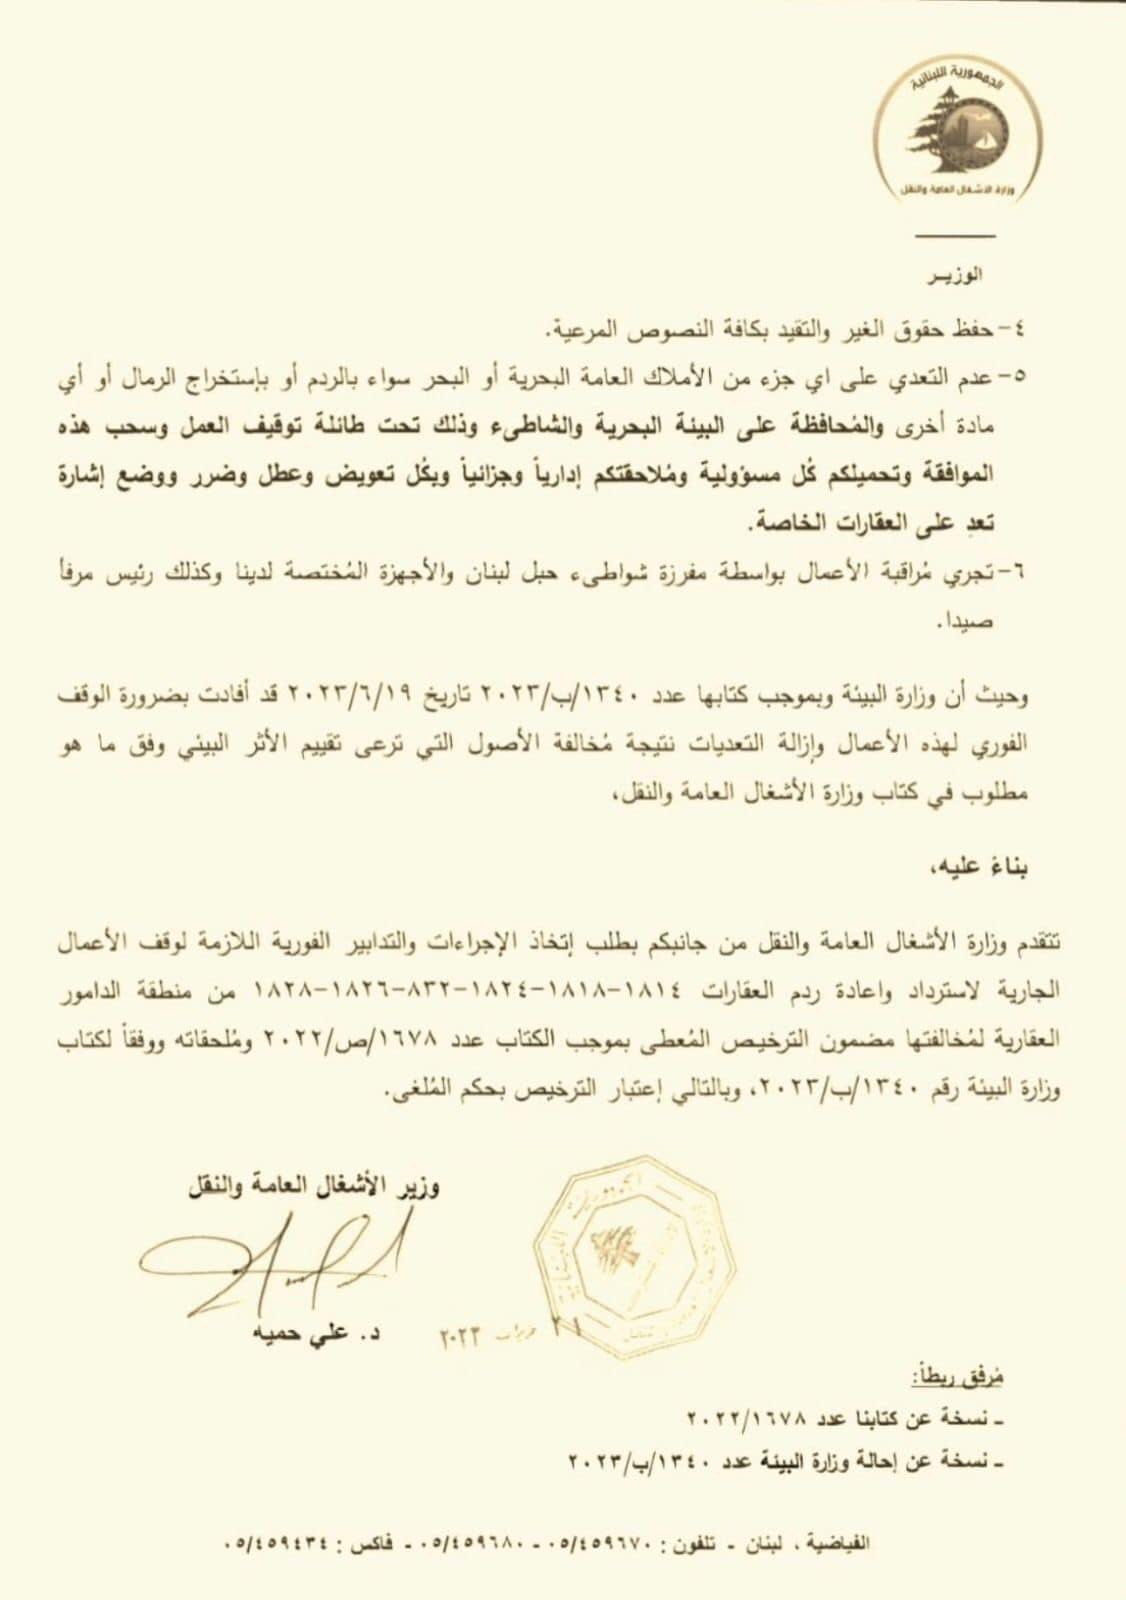 الجمهورية اللبنانية
وزارة الاشغال العامة والنقل
الوزيــر
٤- حفظ حقوق الغير والتقيد بكافة النصوص المرعية.
٥- عدم التعدي على اي جزء من الأملاك العامة البحرية أو البحر سواء بالردم أو بإستخراج الرمال أو أي
مادة أخرى والمُحافظة على البيئة البحرية والشاطىء وذلك تحت طائلة توقيف العمل وسحب هذه
الموافقة وتحميلكم كُل مسؤولية ومُلاحقتكم إدارياً وجزائياً وبكُل تعويض وعطل وضرر ووضع إشارة
تعدِ على العقارات الخاصة.
٦- تجري مُراقبة الأعمال بواسطة مفرزة شواطىء حبل لبنان والأجهزة المُختصة لدينا وكذلك رئيس مرفأ
صيدا.
وحيث أن وزارة البيئة وبموجب كتابها عدد ١٣٤٠/ب/٢٠٢٣ تاريخ ٢٠٢٣/٦/١٩ قد أفادت بضرورة الوقف
الفوري لهذه الأعمال وإزالة التعديات نتيجة مُخالفة الأصول التي ترعى تقييم الأثر البيئي وفق ما هو
مطلوب في كتاب وزارة الأشغال العامة والنقل،
بناءً عليه،
تتقدم وزارة الأشغال العامة والنقل من جانبكم بطلب إتخاذ الإجراءات والتدابير الفورية اللازمة لوقف الأعمال
الجارية لاسترداد واعادة ردم العقارات ١٨١٤-١٨١٨-١٨٢٤-٨٣٢-١٨٢٦-١٨٢٨ من منطقة الدامور
العقارية لمُخالفتها مضمون الترخيص المُعطى بموجب الكتاب عدد ١٦٧٨/ص/٢٠٢٢ ومُلحقاته ووفقاً لكتاب
وزارة البيئة رقم ١٣٤٠/ب/٢٠٢٣، وبالتالي إعتبار الترخيص بحكم المُلغى.
وزير الأشغال العامة والنقل
د. علي حميه
٢١ حزيران ٢٠٢٣
مُرفق ربطاً:
ـ نسخة عن كتابنا عدد ٢٠٢٢/١٦٧٨
ـ نسخة عن إحالة وزارة البيئة عدد ١٣٤٠/ب/٢٠٢٣
الفياضية ، لبنان - تلفون : ٠٥/٤٥٩٦٧٠ - ٠٥/٤٥٩٦٨٠ - فاكس : ٠٥/٤٥٩٤٣٤